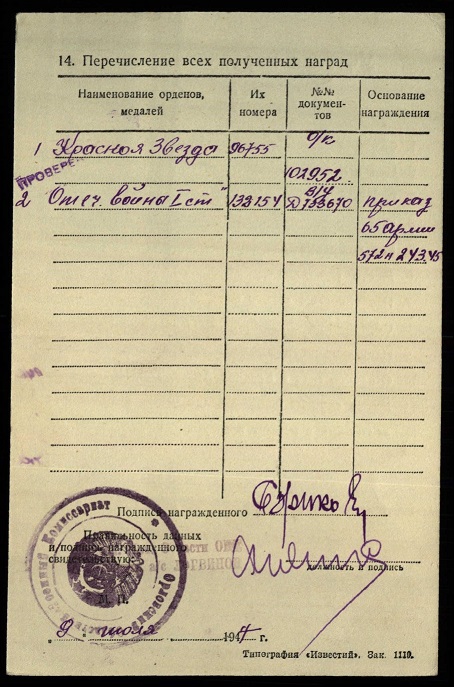 14. Перечисление всех полученных наград
Наименование орденов, медалей
Их номера
№№ документов
Основание награждения
о/к
1 Красная Звезда 96755
102952
ПРОВЕРЕ
2 "Отеч. войны I ст" 133154 Д 733670 приказ
65 армии
572н 24.3.45
Подпись награжденного
Правильность данных
и подпись награжденного
свидетельствую:
должность и подпись
М. П.
Военный Комиссариат
9 июля 1947 г.
Типография «Известий». Зак. 1110.